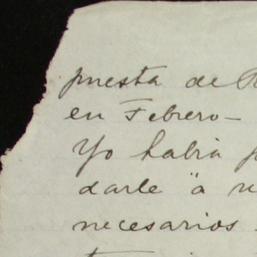 puesta de
en Febrero-
Yo habia
darle "a
necesarios